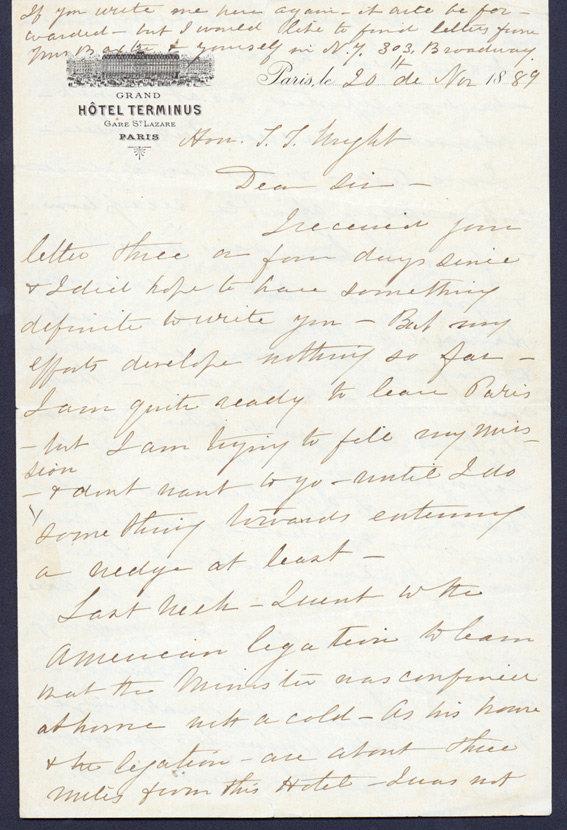 If you write me here again - it will be for-
warded - but I would like to find letters from
Mrs Baxter & yourself in N.Y. 303, Broadway
GRAND
HÔTEL TERMINUS
GARE ST LAZARE
PARIS
Paris, le 20th de Nov 1889
Hon. T. T. Wright
Dear Sir -
I received your
letter three or four days since
& I did hope to have something
definite to write you - But my
efforts develope nothing so far -
I am quite ready to leave Paris
- but I am trying to fill my mis-
sion
- & dont want to go - until I do
something towards entering
a wedge at least -
Last week - I went to the
American legation to learn
that the Minister was confined
at home with a cold - As his home
& the legation - are about three
miles from this Hotel - I was not